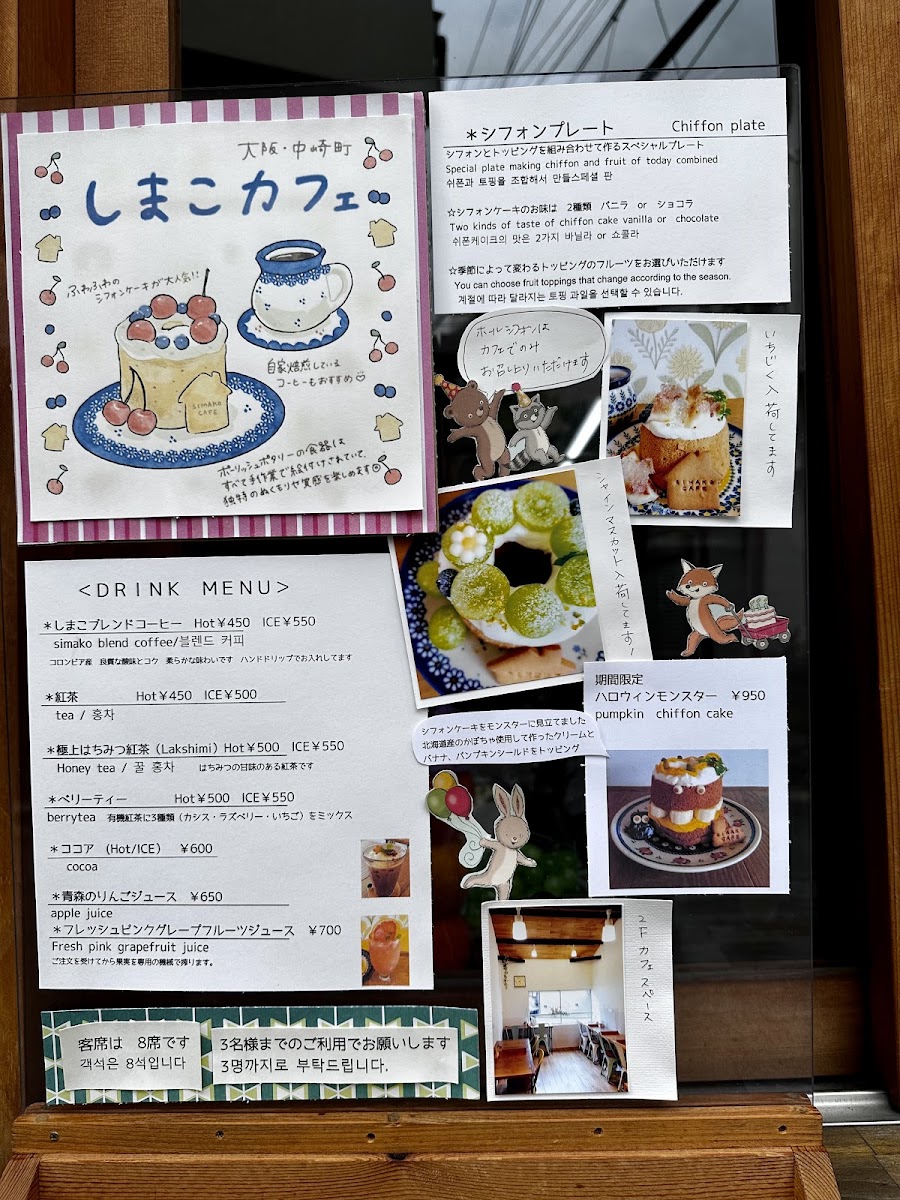 大阪・中崎町
しまこカフェ
ふわふわの
シフォンケーキが大人気!!
自家焙煎している
コーヒーもおすすめ♡
SIMAKO
CAFE
ポーリッシュポタリーの食器は
すべて手作業で絵付けされていて、
独特のぬくもりや質感を楽しめます
＊シフォンプレート Chiffon plate
シフォンとトッピングを組み合わせて作るスペシャルプレート
Special plate making chiffon and fruit of today combined
쉬폰과 토핑을 조합해서 만들스페셜 판
☆シフォンケーキのお味は 2種類 バニラ or ショコラ
Two kinds of taste of chiffon cake vanilla or chocolate
쉬폰케이크의 맛은 2가지 바닐라 or 쇼콜라
☆季節によって変わるトッピングのフルーツをお選びいただけます
You can choose fruit toppings that change according to the season.
계절에 따라 달라지는 토핑 과일을 선택할 수 있습니다.
ホールシフォンは
カフェでのみ
お召し上がりいただけます
いちじく入荷してます
SIMAKO
CAFE
シャインマスカット入荷してます!
<DRINK MENU>
＊しまこブレンドコーヒー Hot￥450 ICE￥550
simako blend coffee/블렌드 커피
コロンビア産 良質な酸味とコク 柔らかな味わいです ハンドドリップでお入れしてます
＊紅茶 Hot￥450 ICE￥500
tea / 홍차
＊極上はちみつ紅茶（Lakshimi）Hot￥500 ICE￥550
Honey tea / 꿀 홍차 はちみつの甘味のある紅茶です
＊ベリーティー Hot￥500 ICE￥550
berrytea 有機紅茶に3種類（カシス・ラズベリー・いちご）をミックス
＊ココア (Hot/ICE) ￥600
cocoa
＊青森のりんごジュース ￥650
apple juice
＊フレッシュピンクグレープフルーツジュース ￥700
Fresh pink grapefruit juice
ご注文を受けてから果実を専用の機械で搾ります。
期間限定
ハロウィンモンスター ￥950
pumpkin chiffon cake
シフォンケーキをモンスターに見立てました
北海道産のかぼちゃ使用して作ったクリームと
バナナ、パンプキンシールドをトッピング
2Fカフェスペース
客席は 8席です
객석은 8석입니다
3名様までのご利用でお願いします
3명까지로 부탁드립니다.